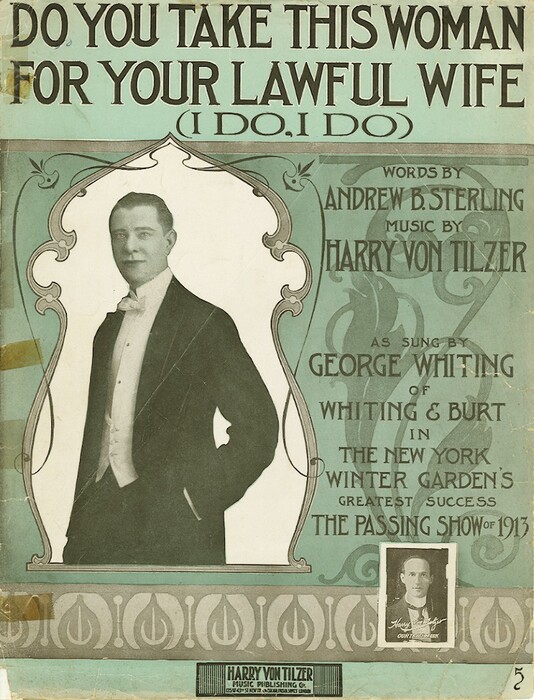 DO YOU TAKE THIS WOMAN
FOR YOUR LAWFUL WIFE
(I DO, I DO)
WORDS BY
ANDREW B. STERLING
MUSIC BY
HARRY VON TILZER
AS SUNG BY
GEORGE WHITING
OF
WHITING & BURT
IN
THE NEW YORK
WINTER GARDEN'S
GREATEST SUCCESS
THE PASSING SHOW OF 1913
Harry Von Tilzer
HARRY VON TILZER
MUSIC PUBLISHING Co.
5